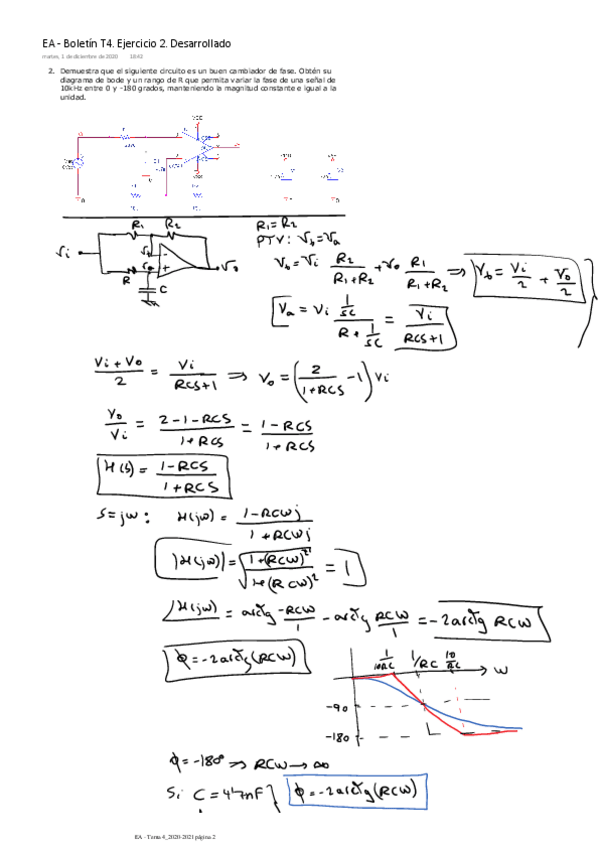 EA - Boletín T4. Ejercicio 2. Desarrollado
martes, 1 de diciembre de 2020 18:43
2. Demuestra que el siguiente circuito es un buen cambiador de fase. Obtén su
diagrama de bode y un rango de R que permita variar la fase de una señal de
10kHz entre 0 y -180 grados, manteniendo la magnitud constante e igual a la
unidad.
R1 R2
Vi Vb Va V0
R C
R1 = R2
PTV: Vb = Va
Vb = Vi R2/(R1+R2) + V0 R1/(R1+R2) => Vb = Vi/2 + V0/2
Va = Vi (1/SC)/(R + 1/SC) = Vi/(RCS+1)
(Vi + V0)/2 = Vi/(RCS+1) => V0 = (2/(1+RCS) - 1) Vi
V0/Vi = (2-1-RCS)/(1+RCS) = (1-RCS)/(1+RCS)
H(s) = (1-RCS)/(1+RCS)
S=jw: H(jw) = (1-RCWj)/(1+RCWj)
|H(jw)| = √(1+(RCW)²)/√(1+(RCW)²) = 1
∠H(jw) = arctg -RCW/1 - arctg RCW/1 = -2arctg RCW
ϕ = -2arctg(RCW)
1/10RC 1/RC 10/RC W
-90
-180
ϕ = -180° => RCW → ∞
Si C = 4'7nF } ϕ = -2arctg(RCW)
EA - Tema 4_2020-2021 página 2